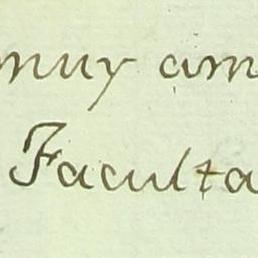 muy am
Faculta